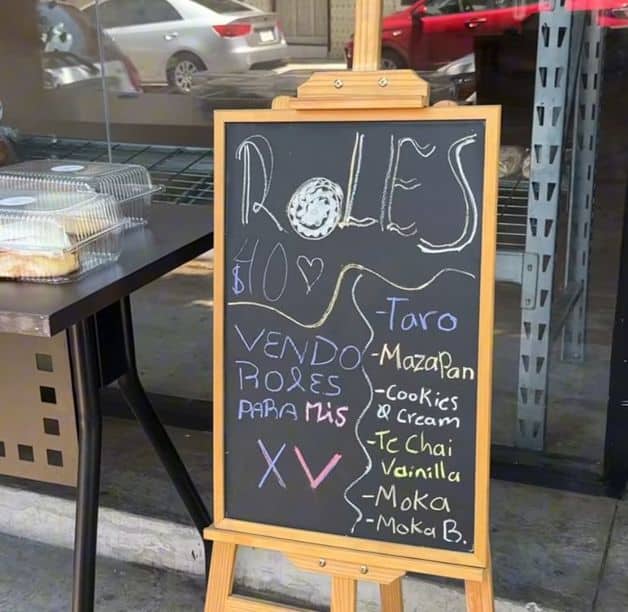 ROLES
$40
VENDO
ROLES
PARA MIS
XV
-Taro
-Mazapan
-Cookies
& Cream
-Te Chai
Vainilla
-Moka
-Moka B.